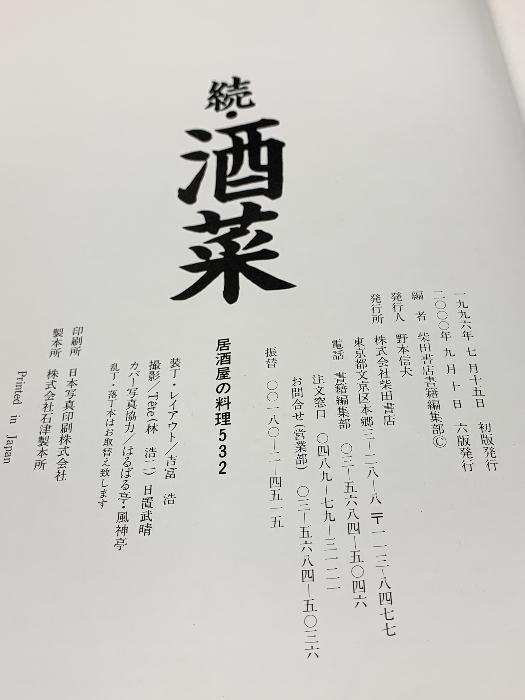 続・
酒菜
一九九六年 七月十五日 初版発行
二〇〇〇年 九月十日 六版発行
編 者 柴田書店書籍編集部©
発行人 野本信夫
発行所 株式会社柴田書店
東京都文京区本郷三―一八―八 〒一一三―八四七七
電話 書籍編集部 〇三―五六八四―五〇四六
注文窓口 〇四八九―七九―三一一一
お問合せ(営業部) 〇三―五六八四―五〇三六
振替 〇〇一八〇―二―四五一五
居酒屋の料理532
装丁・レイアウト/吉冨 浩
撮影/Teee(林 浩二) 日置武晴
カバー写真協力/はるばる亭・風神亭
乱丁・落丁本はお取替え致します
印刷所 日本写真印刷株式会社
製本所 株式会社石津製本所
Printed in Japan